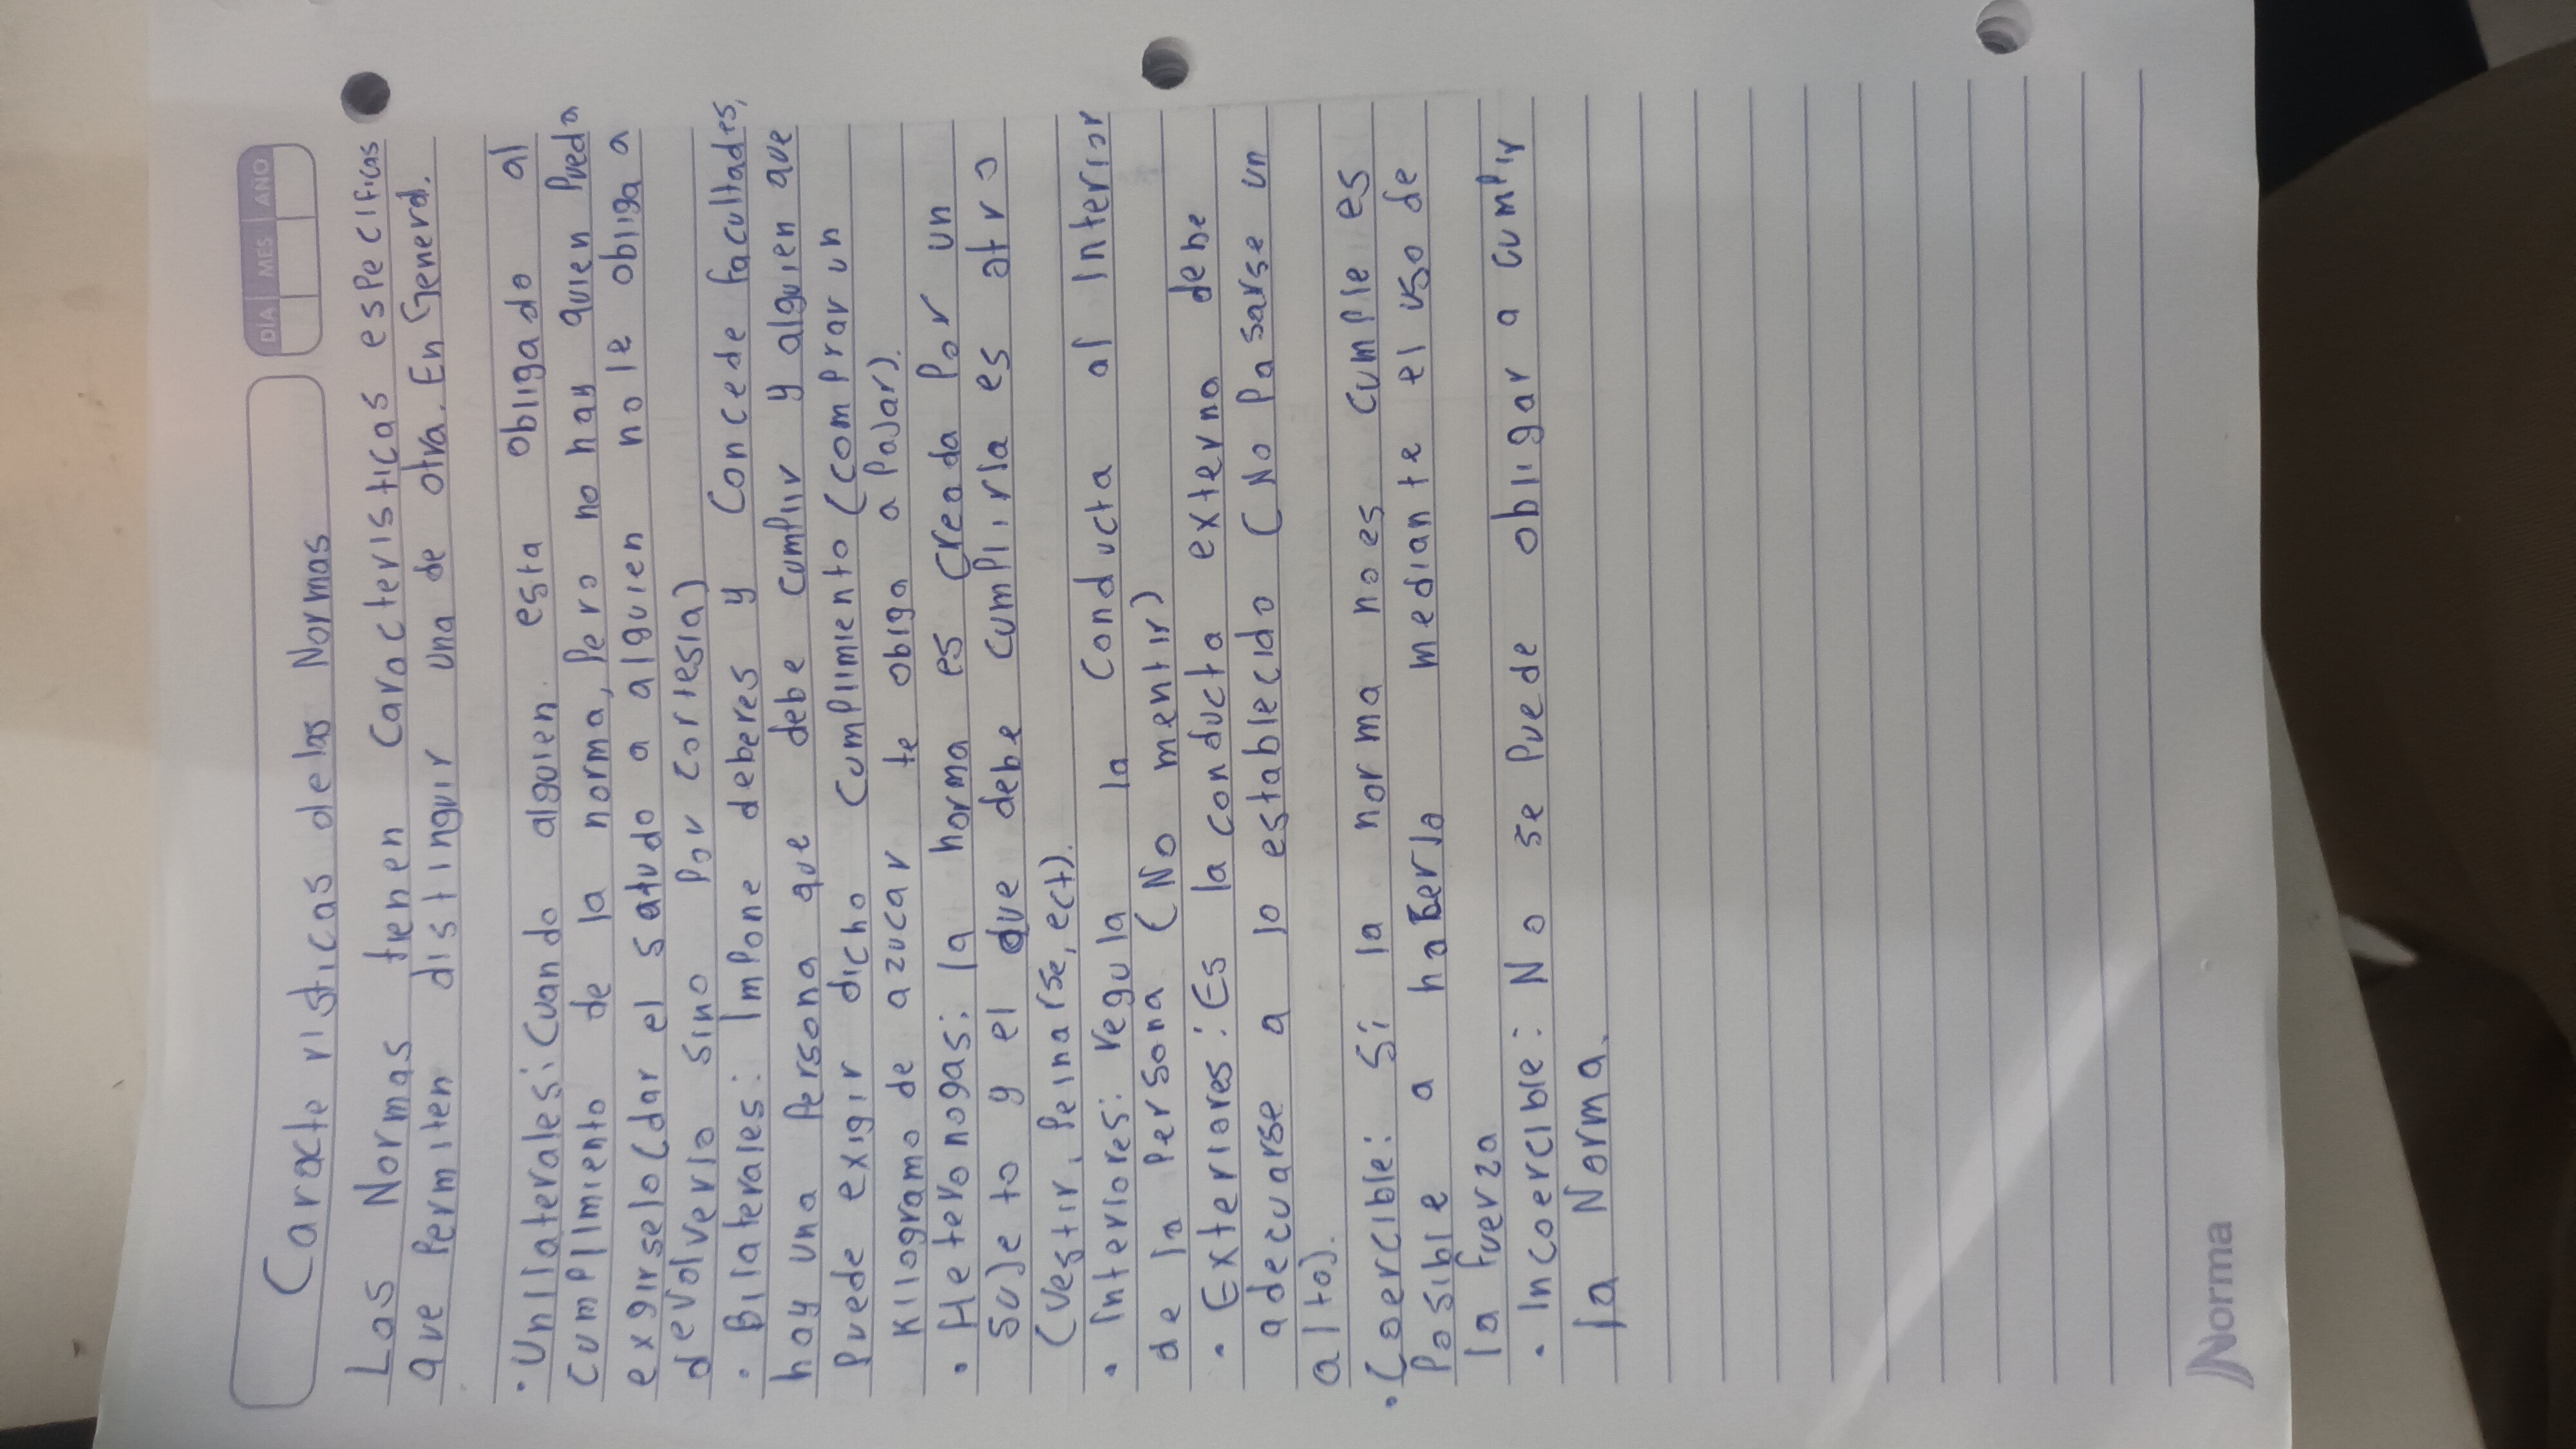 DÍA MES AÑO
Caracteristicas de las Normas
Las Normas tienen Caracteristicas especificas
que Permiten distinguir una de otra. En General.
· Unilaterales: Cuando alguien esta obligado al
cumplimiento de la norma, Pero no hay quien Pueda
exgirselo (dar el saludo a alguien no le obliga a
devolverlo sino Por cortesia)
· Bilaterales: Impone deberes y Concede facultades,
hay una Persona que debe cumplir y alguien que
Puede exigir dicho Cumplimiento (comprar un
Kilogramo de azucar te obiga a Pagar).
· Heteronogas: la norma es Creada Por un
Sujeto y el que debe cumplirla es otro
(Vestir, Peinarse, ect).
· Interiores: regula la Conducta al Interior
de la Persona (No mentir)
· Exteriores: Es la conducta externa debe
adecuarse a lo establecido (No Pasarse un
alto).
· Coercible: Si la norma no es cumple es
Posible a haberla mediante el uso de
la fuerza
· Incoercible: No se Puede obligar a cumplir
la Norma.
Norma